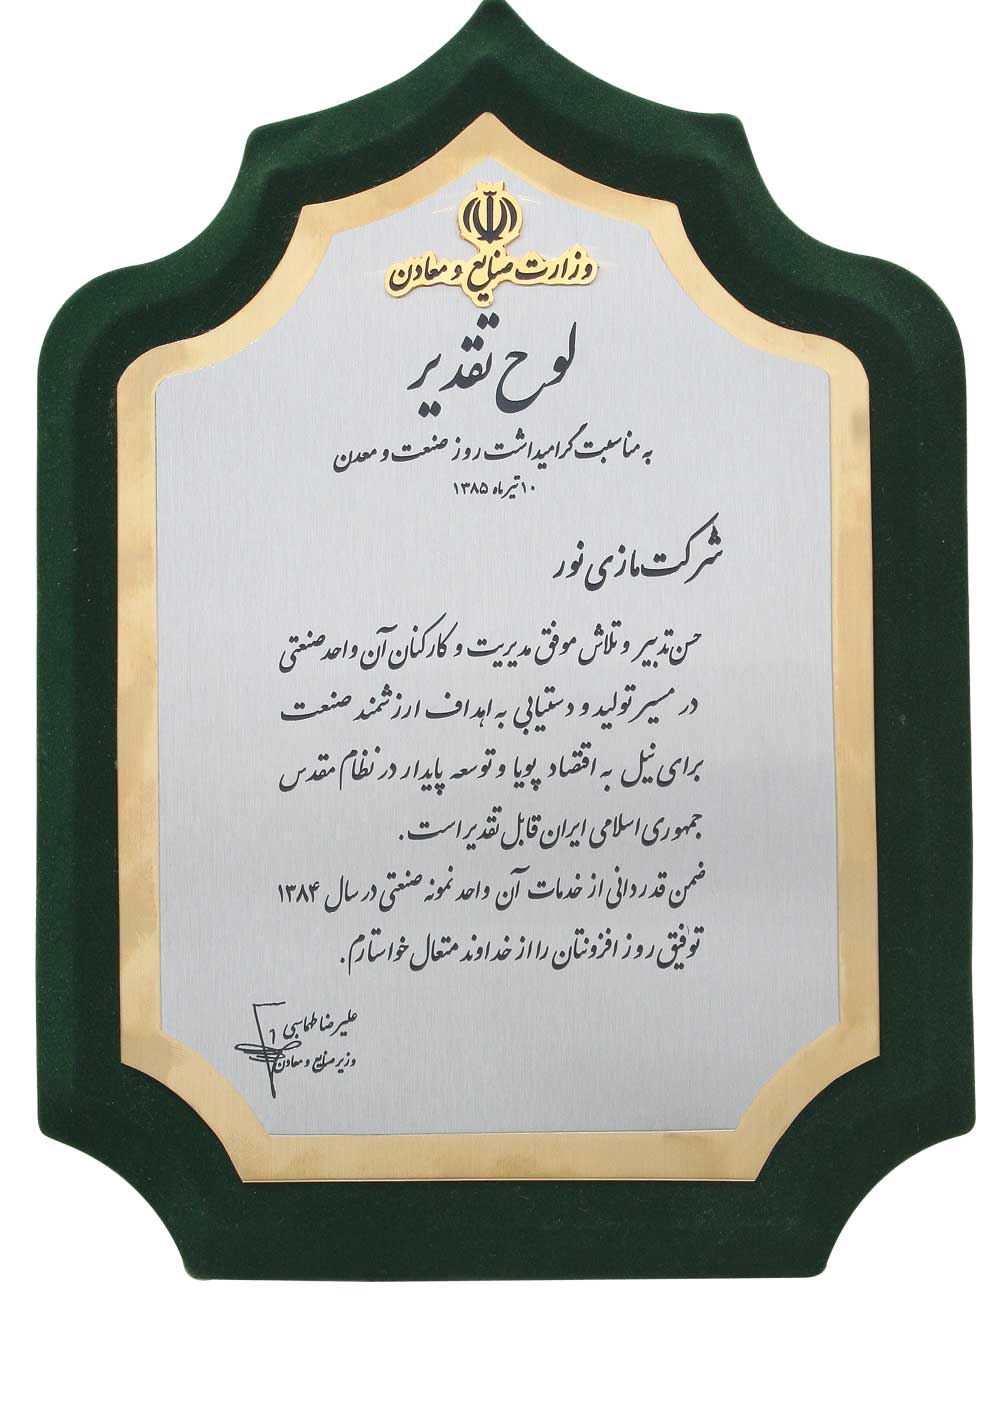 وزارت صنایع و معادن
لوح تقدیر
به مناسبت گرامیداشت روز صنعت و معدن
۱۰ تیرماه ۱۳۸۵
شرکت مازی نور
حسن تدبیر و تلاش موفق مدیریت و کارکنان آن واحد صنعتی
در مسیر تولید و دستیابی به اهداف ارزشمند صنعت
برای نیل به اقتصاد پویا و توسعه پایدار در نظام مقدس
جمهوری اسلامی ایران قابل تقدیر است.
ضمن قدردانی از خدمات آن واحد نمونه صنعتی در سال ۱۳۸۴
توفیق روز افزونتان را از خداوند متعال خواستارم.
علیرضا طهماسبی
وزیر صنایع و معادن